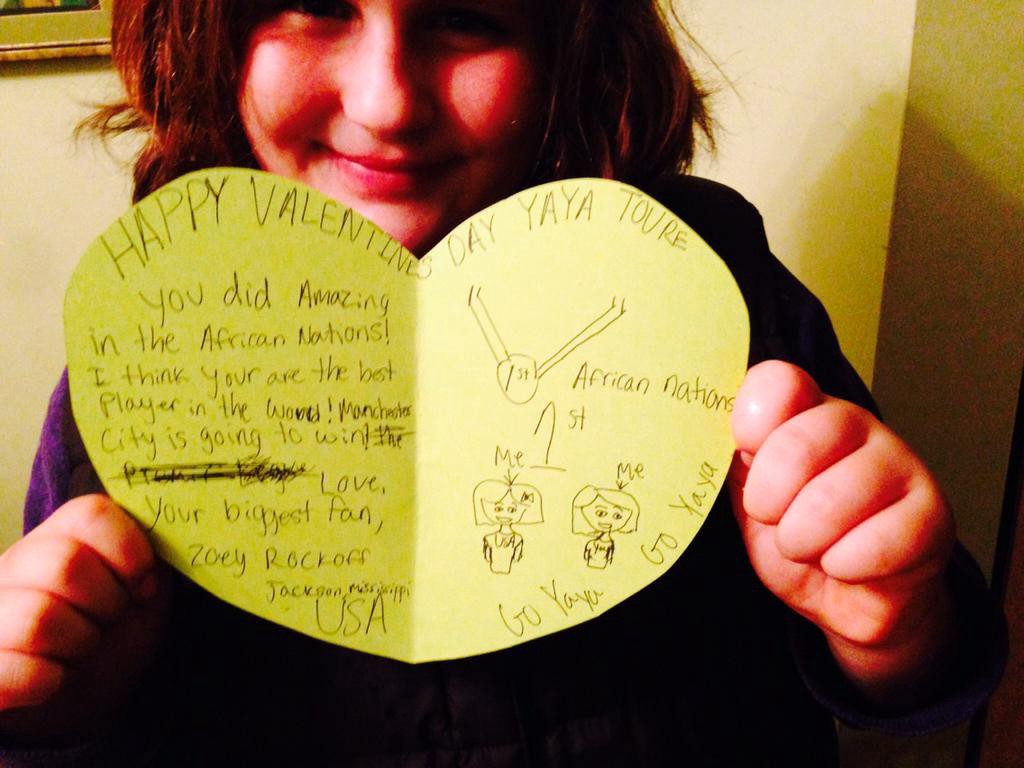 HAPPY VALENTINES DAY YAYA TOURE
you did Amazing
in the African Nations!
I think your are the best
Player in the world! Manchester
City is going to win! the
Love,
Your biggest fan,
Zoey Rockoff
Jackson, Mississippi
USA
1st
African nations
1st
Me
Me
USA
Go Yaya
Go Yaya